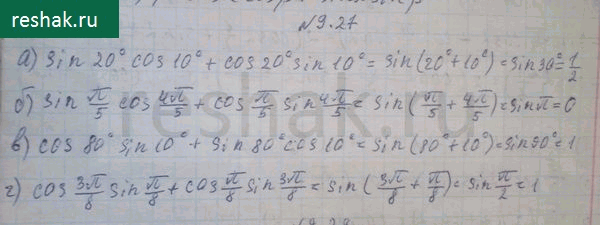 reshak.ru
№9.27
а) sin 20° cos 10° + cos 20° sin 10° = sin(20° + 10°) = sin 30° = 1/2
б) sin π/5 cos 4π/5 + cos π/5 sin 4π/5 = sin(π/5 + 4π/5) = sin π = 0
в) cos 80° sin 10° + sin 80° cos 10° = sin(80° + 10°) = sin 90° = 1
г) cos 3π/8 sin π/8 + cos π/8 sin 3π/8 = sin(3π/8 + π/8) = sin π/2 = 1